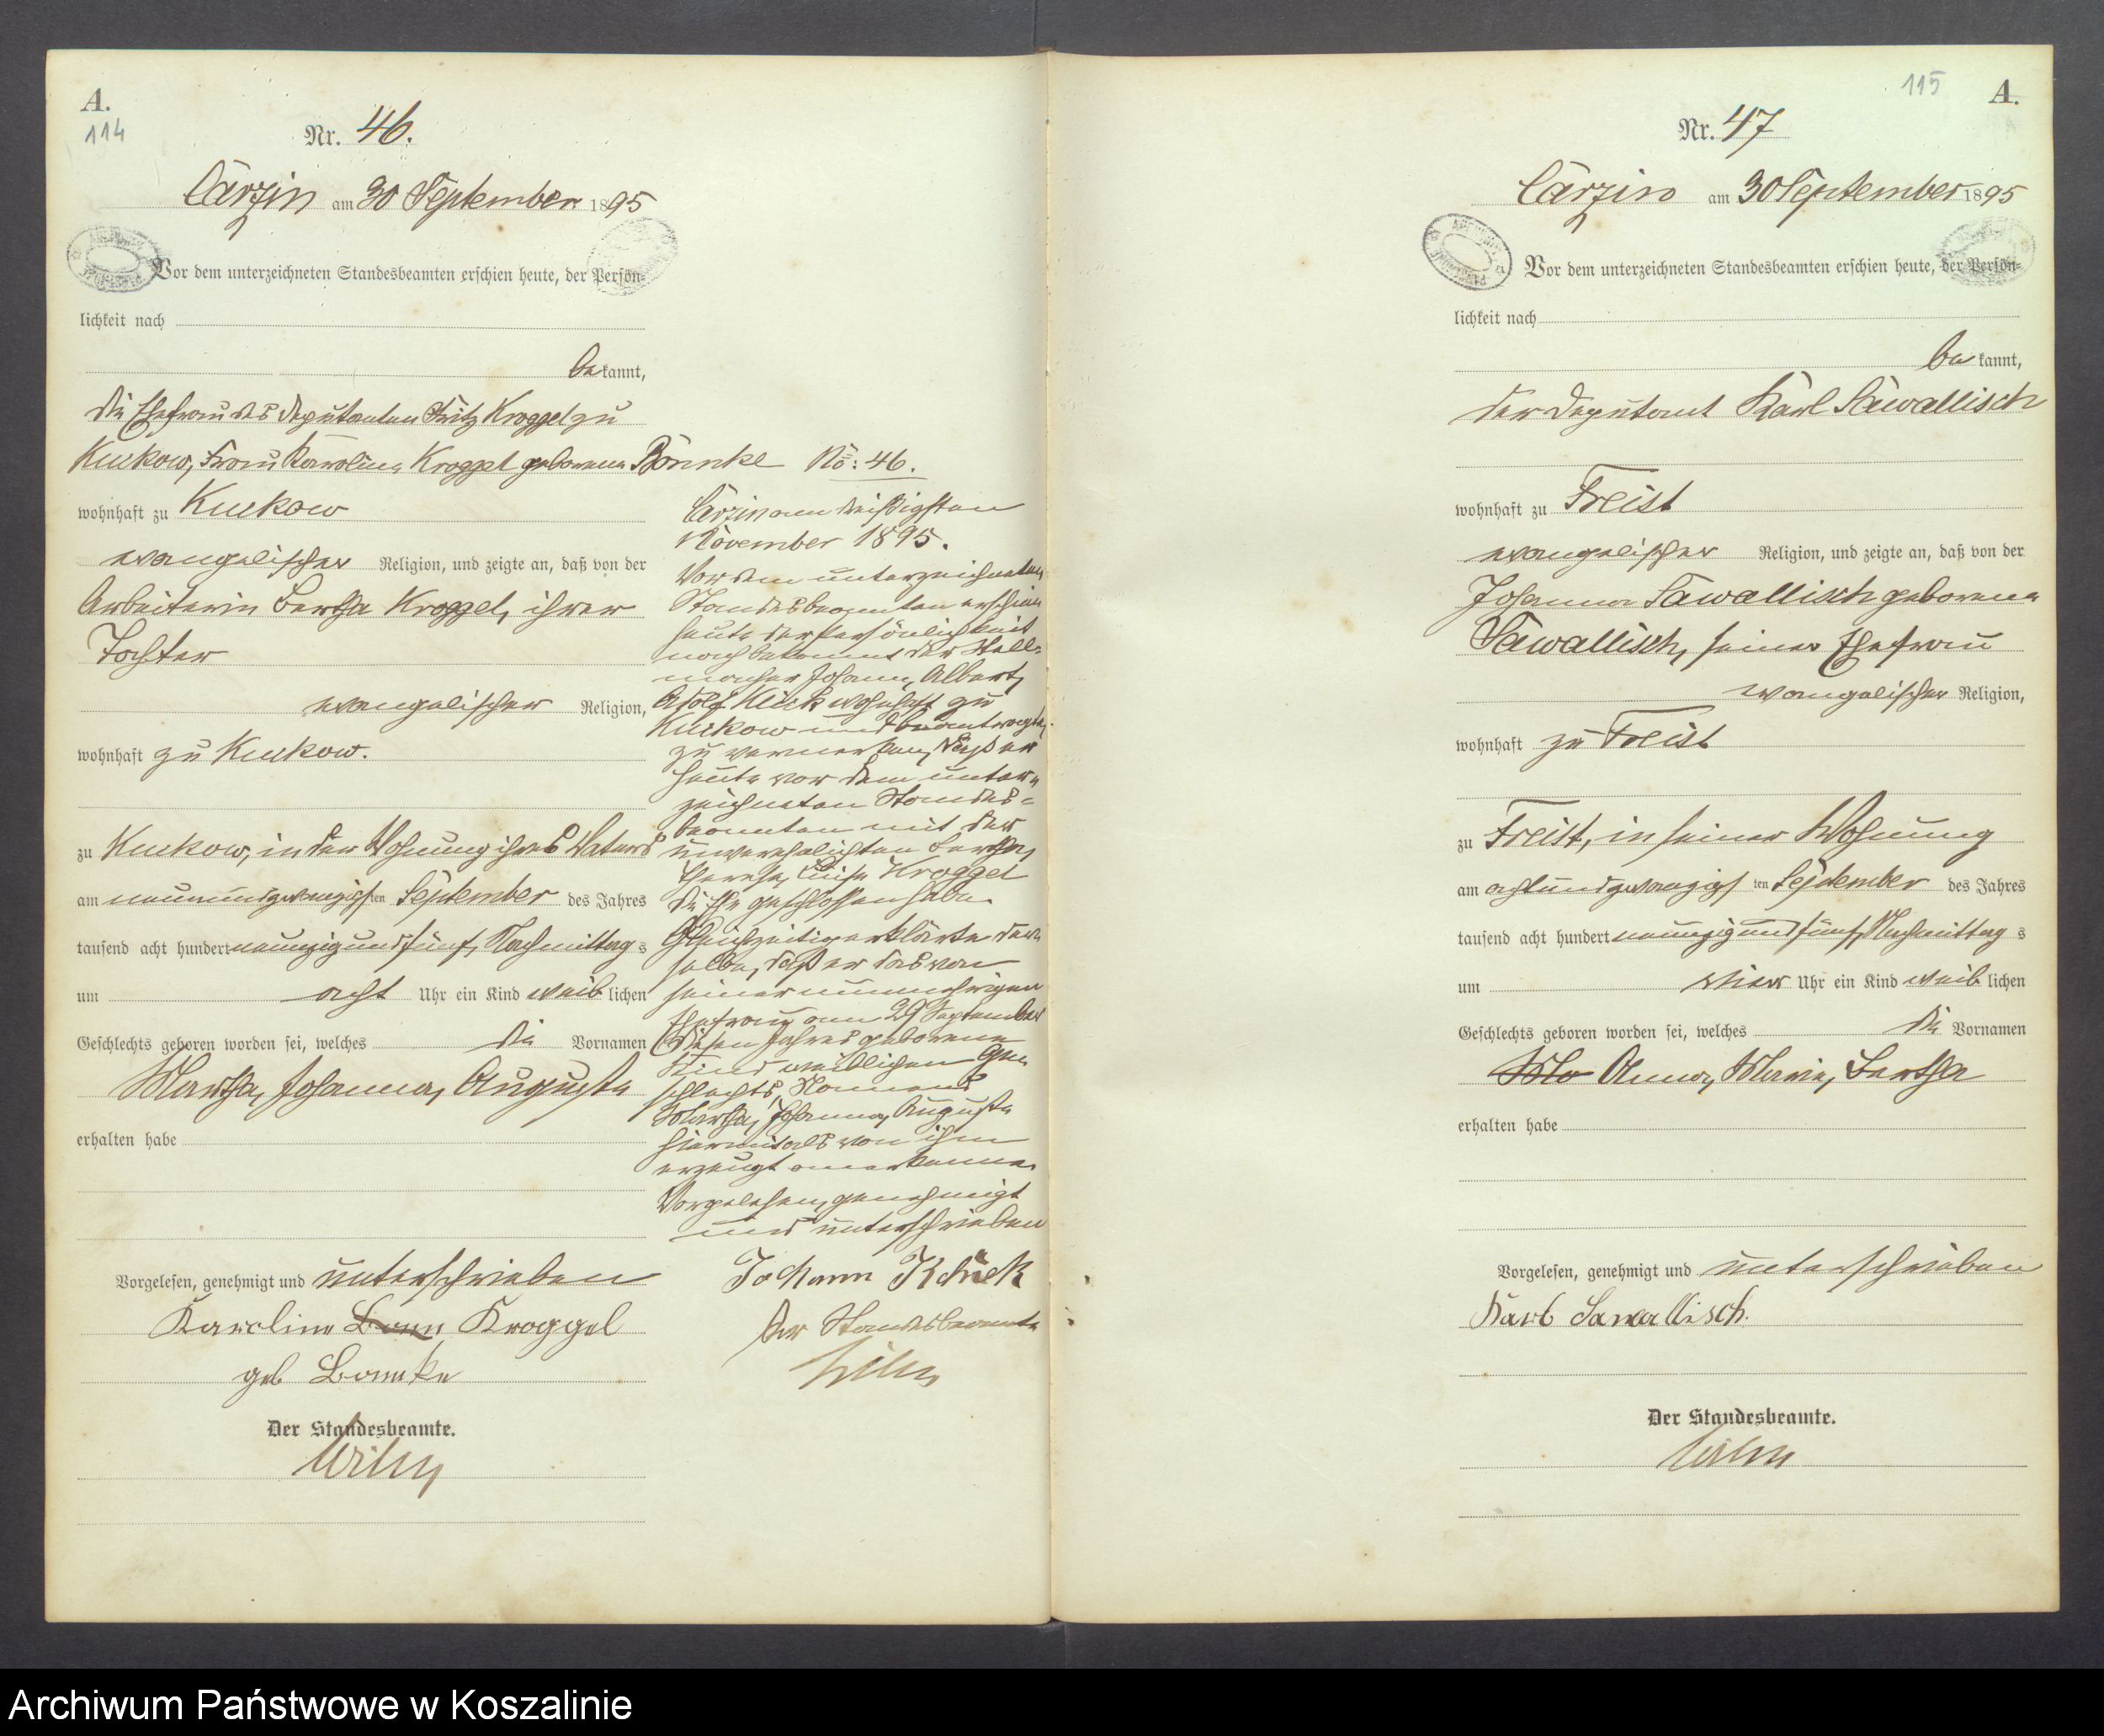 A.
114
Nr. 46.
Carzin am 30 September 1895
Vor dem unterzeichneten Standesbeamten erschien heute, der Persön-
lichkeit nach
be kannt,
die Ehefrau des Deputanten Fritz Kroggel zu
Kuckow, Frau Karoline Kroggel geborene Bönnke
wohnhaft zu Kuckow
evangelischer Religion, und zeigte an, daß von der
Arbeiterin Bertha Kroggel, ihrer
Tochter
evangelischer Religion,
wohnhaft zu Kuckow.
zu Kuckow, in der Wohnung ihres Vaters
am neunundzwanzigsten September des Jahres
tausend acht hundert neunzig und fünf, Nachmittag s
um acht Uhr ein Kind weib lichen
Geschlechts geboren worden sei, welches die Vornamen
Martha, Johanna, Auguste
erhalten habe
Vorgelesen, genehmigt und unterschrieben
Karoline Kroggel
geb Bonnke
Der Standesbeamte.
No: 46.
Carzin am dreißigsten
November 1895.
Vor dem unterzeichneten
Standesbeamten erschien
heute der Persönlichkeit
nach bekannt der Stell-
macher Johann, Albert,
Adolf Kuck wohnhaft zu
Kuckow und beantragte,
zu vermerken, daß er
heute vor dem unter-
zeichneten Standes-
beamten mit der
unverehelichten Bertha,
Therese, Luise Kroggel
die Ehe geschlossen habe.
Gleichzeitig erklärte der-
selbe, daß er das von
seiner nunmehrigen
Ehefrau am 29 September
diesen Jahres geborene
Kind weiblichen Ge-
schlechts, Namens
Martha, Johanna, Auguste
hiermit als von ihm
erzeugt anerkenne.
Vorgelesen, genehmigt
und unterschrieben
Johann
Der Standesbeamte
115
A.
Nr. 47
Carzin am 30 September 1895
Vor dem unterzeichneten Standesbeamten erschien heute, der Persön-
lichkeit nach
be kannt,
der Deputant Karl Sawallisch
wohnhaft zu Freist
evangelischer Religion, und zeigte an, daß von der
Johanna Sawallisch geborene
Sawallisch, seiner Ehefrau
evangelischer Religion,
wohnhaft zu Freist
zu Freist, in seiner Wohnung
am achtundzwanzigs ten September des Jahres
tausend acht hundert neunzig und fünf, Nachmittag s
um vier Uhr ein Kind weib lichen
Geschlechts geboren worden sei, welches die Vornamen
Anna, Marie, Bertha
erhalten habe
Vorgelesen, genehmigt und unterschrieben
Karl Sawallisch.
Der Standesbeamte.
Archiwum Państwowe w Koszalinie